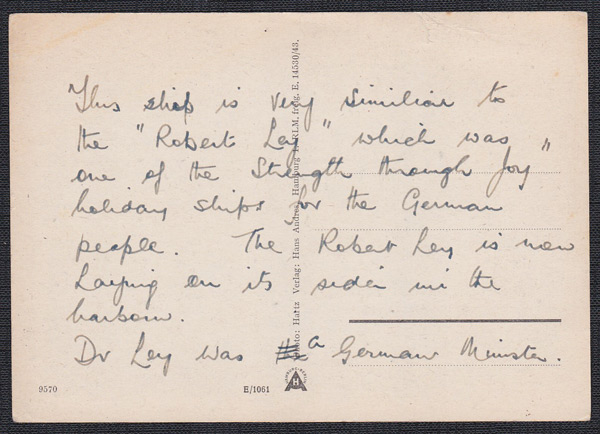 This ship is very similiar to
the "Robert Ley" which was
one of the Strength through Joy"
holiday ships for the German
people. The Robert Ley is now
Laying on its side in the
harbour.
Dr Ley was a German Minister.
Photo: Hartz Verlag: Hans Andres, Hamburg RLM. freig. E. 14530/43.
9570
E/1061